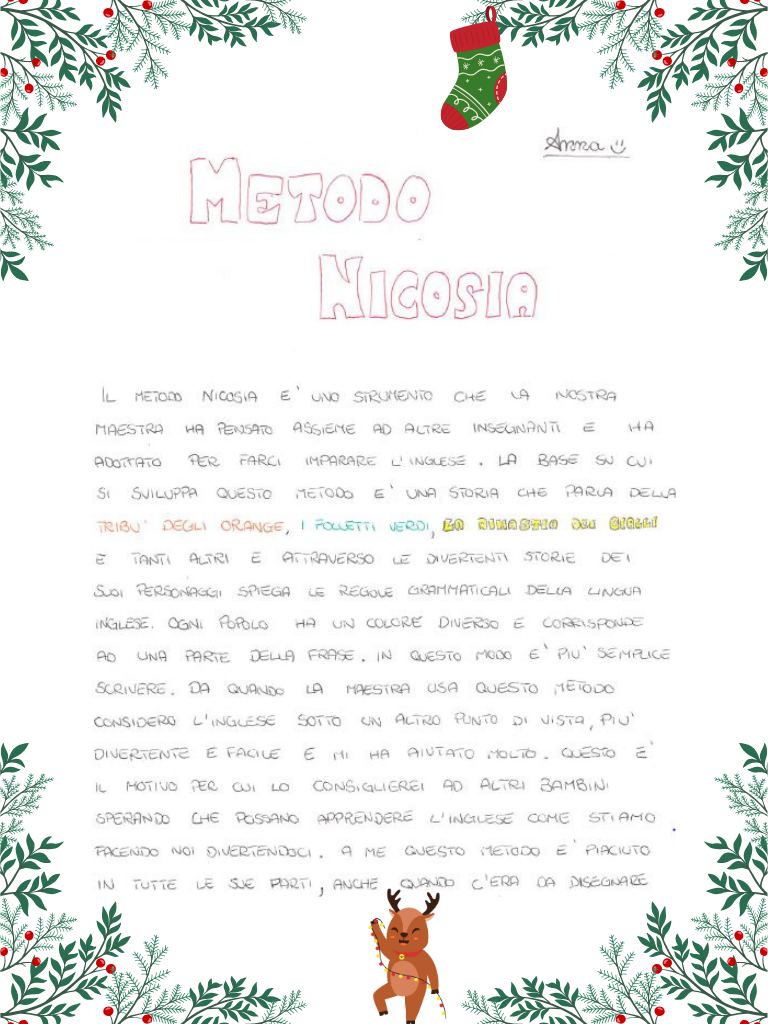 Anna
METODO
NICOSIA
IL METODO NICOSIA E' UNO STRUMENTO CHE LA NOSTRA
MAESTRA HA PENSATO ASSIEME AD ALTRE INSEGNANTI E HA
ADOTTATO PER FARCI IMPARARE L'INGLESE. LA BASE SU CUI
SI SVILUPPA QUESTO METODO E' UNA STORIA CHE PARLA DELLA
TRIBU' DEGLI ORANGE, I FOLLETTI VERDI, LA DINASTIA DEI GIALLI
E TANTI ALTRI E ATTRAVERSO LE DIVERTENTI STORIE DEI
SUOI PERSONAGGI SPIEGA LE REGOLE GRAMMATICALI DELLA LINGUA
INGLESE. OGNI POPOLO HA UN COLORE DIVERSO E CORRISPONDE
AD UNA PARTE DELLA FRASE. IN QUESTO MODO E' PIU' SEMPLICE
SCRIVERE. DA QUANDO LA MAESTRA USA QUESTO METODO
CONSIDERO L'INGLESE SOTTO UN ALTRO PUNTO DI VISTA, PIU'
DIVERTENTE E FACILE E MI HA AIUTATO MOLTO. QUESTO E'
IL MOTIVO PER CUI LO CONSIGLIEREI AD ALTRI BAMBINI
SPERANDO CHE POSSANO APPRENDERE L'INGLESE COME STIAMO
FACENDO NOI DIVERTENDOCI. A ME QUESTO METODO E' PIACIUTO
IN TUTTE LE SUE PARTI, ANCHE QUANDO C'ERA DA DISEGNARE